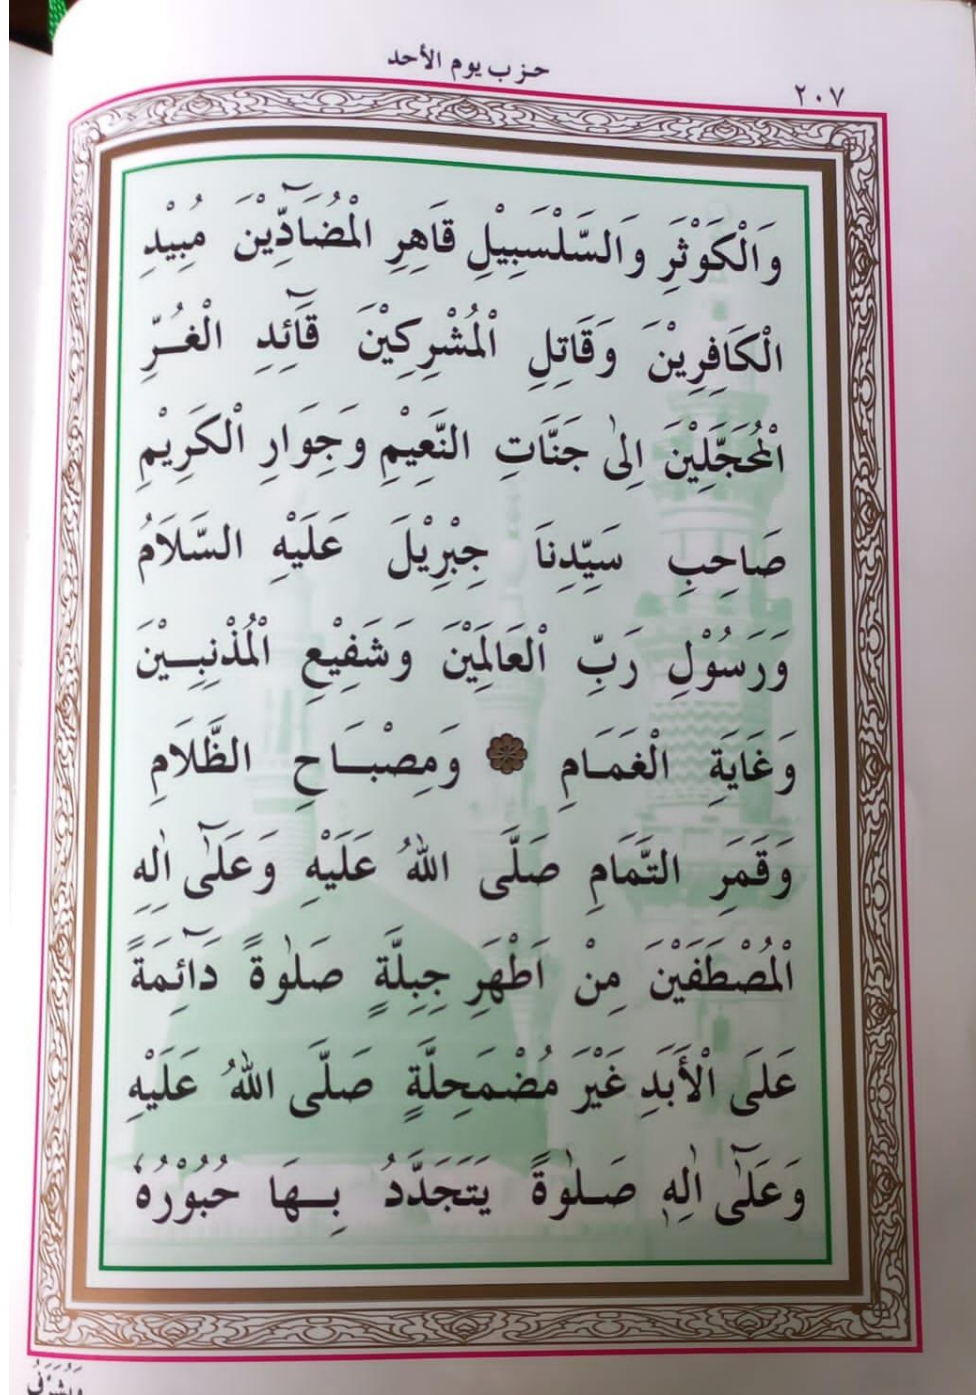 حزب يوم الأحد
٢٠٧
وَالْكَوْثَرِ وَالسَّلْسَبِيْلِ قَاهِرِ الْمُضَآدِّيْنَ مُبِيْدِ
الْكَافِرِيْنَ وَقَاتِلِ الْمُشْرِكِيْنَ قَآئِدِ الْغُرِّ
الْمُحَجَّلِيْنَ اِلىٰ جَنَّاتِ النَّعِيْمِ وَجِوَارِ الْكَرِيْمِ
صَاحِبِ سَيِّدِنَا جِبْرِيْلَ عَلَيْهِ السَّلَامُ
وَرَسُوْلِ رَبِّ الْعَالَمِيْنَ وَشَفِيْعِ الْمُذْنِبِيْنَ
وَغَايَةِ الْغَمَامِ ۞ وَمِصْبَاحِ الظَّلَامِ
وَقَمَرِ التَّمَامِ صَلَّى اللهُ عَلَيْهِ وَعَلٰٓى اٰلِهِ
الْمُصْطَفَيْنَ مِنْ اَطْهَرِ جِبِلَّةٍ صَلٰوةً دَآئِمَةً
عَلَى الْأَبَدِ غَيْرَ مُضْمَحِلَّةٍ صَلَّى اللهُ عَلَيْهِ
وَعَلٰٓى اٰلِهٖ صَلٰوةً يَتَجَدَّدُ بِهَا حُبُوْرُهٗ
وَيُشَرَّفُ